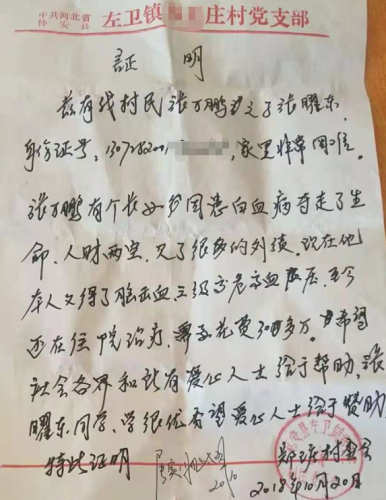 中共河北省
怀安县
左卫镇 庄村党支部
証 明
兹有我村民张万鹏之子张曜东,
身份证号,130728200 ,家里非常困难。
张万鹏有个长女 因患白血病夺走了生
命,人财两空,欠了很多的外债。现在他
本人又得了脑出血三级高危高血压,至今
还在住院治疗,需要花费30多万。希望
社会各界和所有爱心人士给予帮助,张
曜东同学,学很优希望爱心人士给于赞助
特此证明
20/10
郑 村委会
2018年10月20日